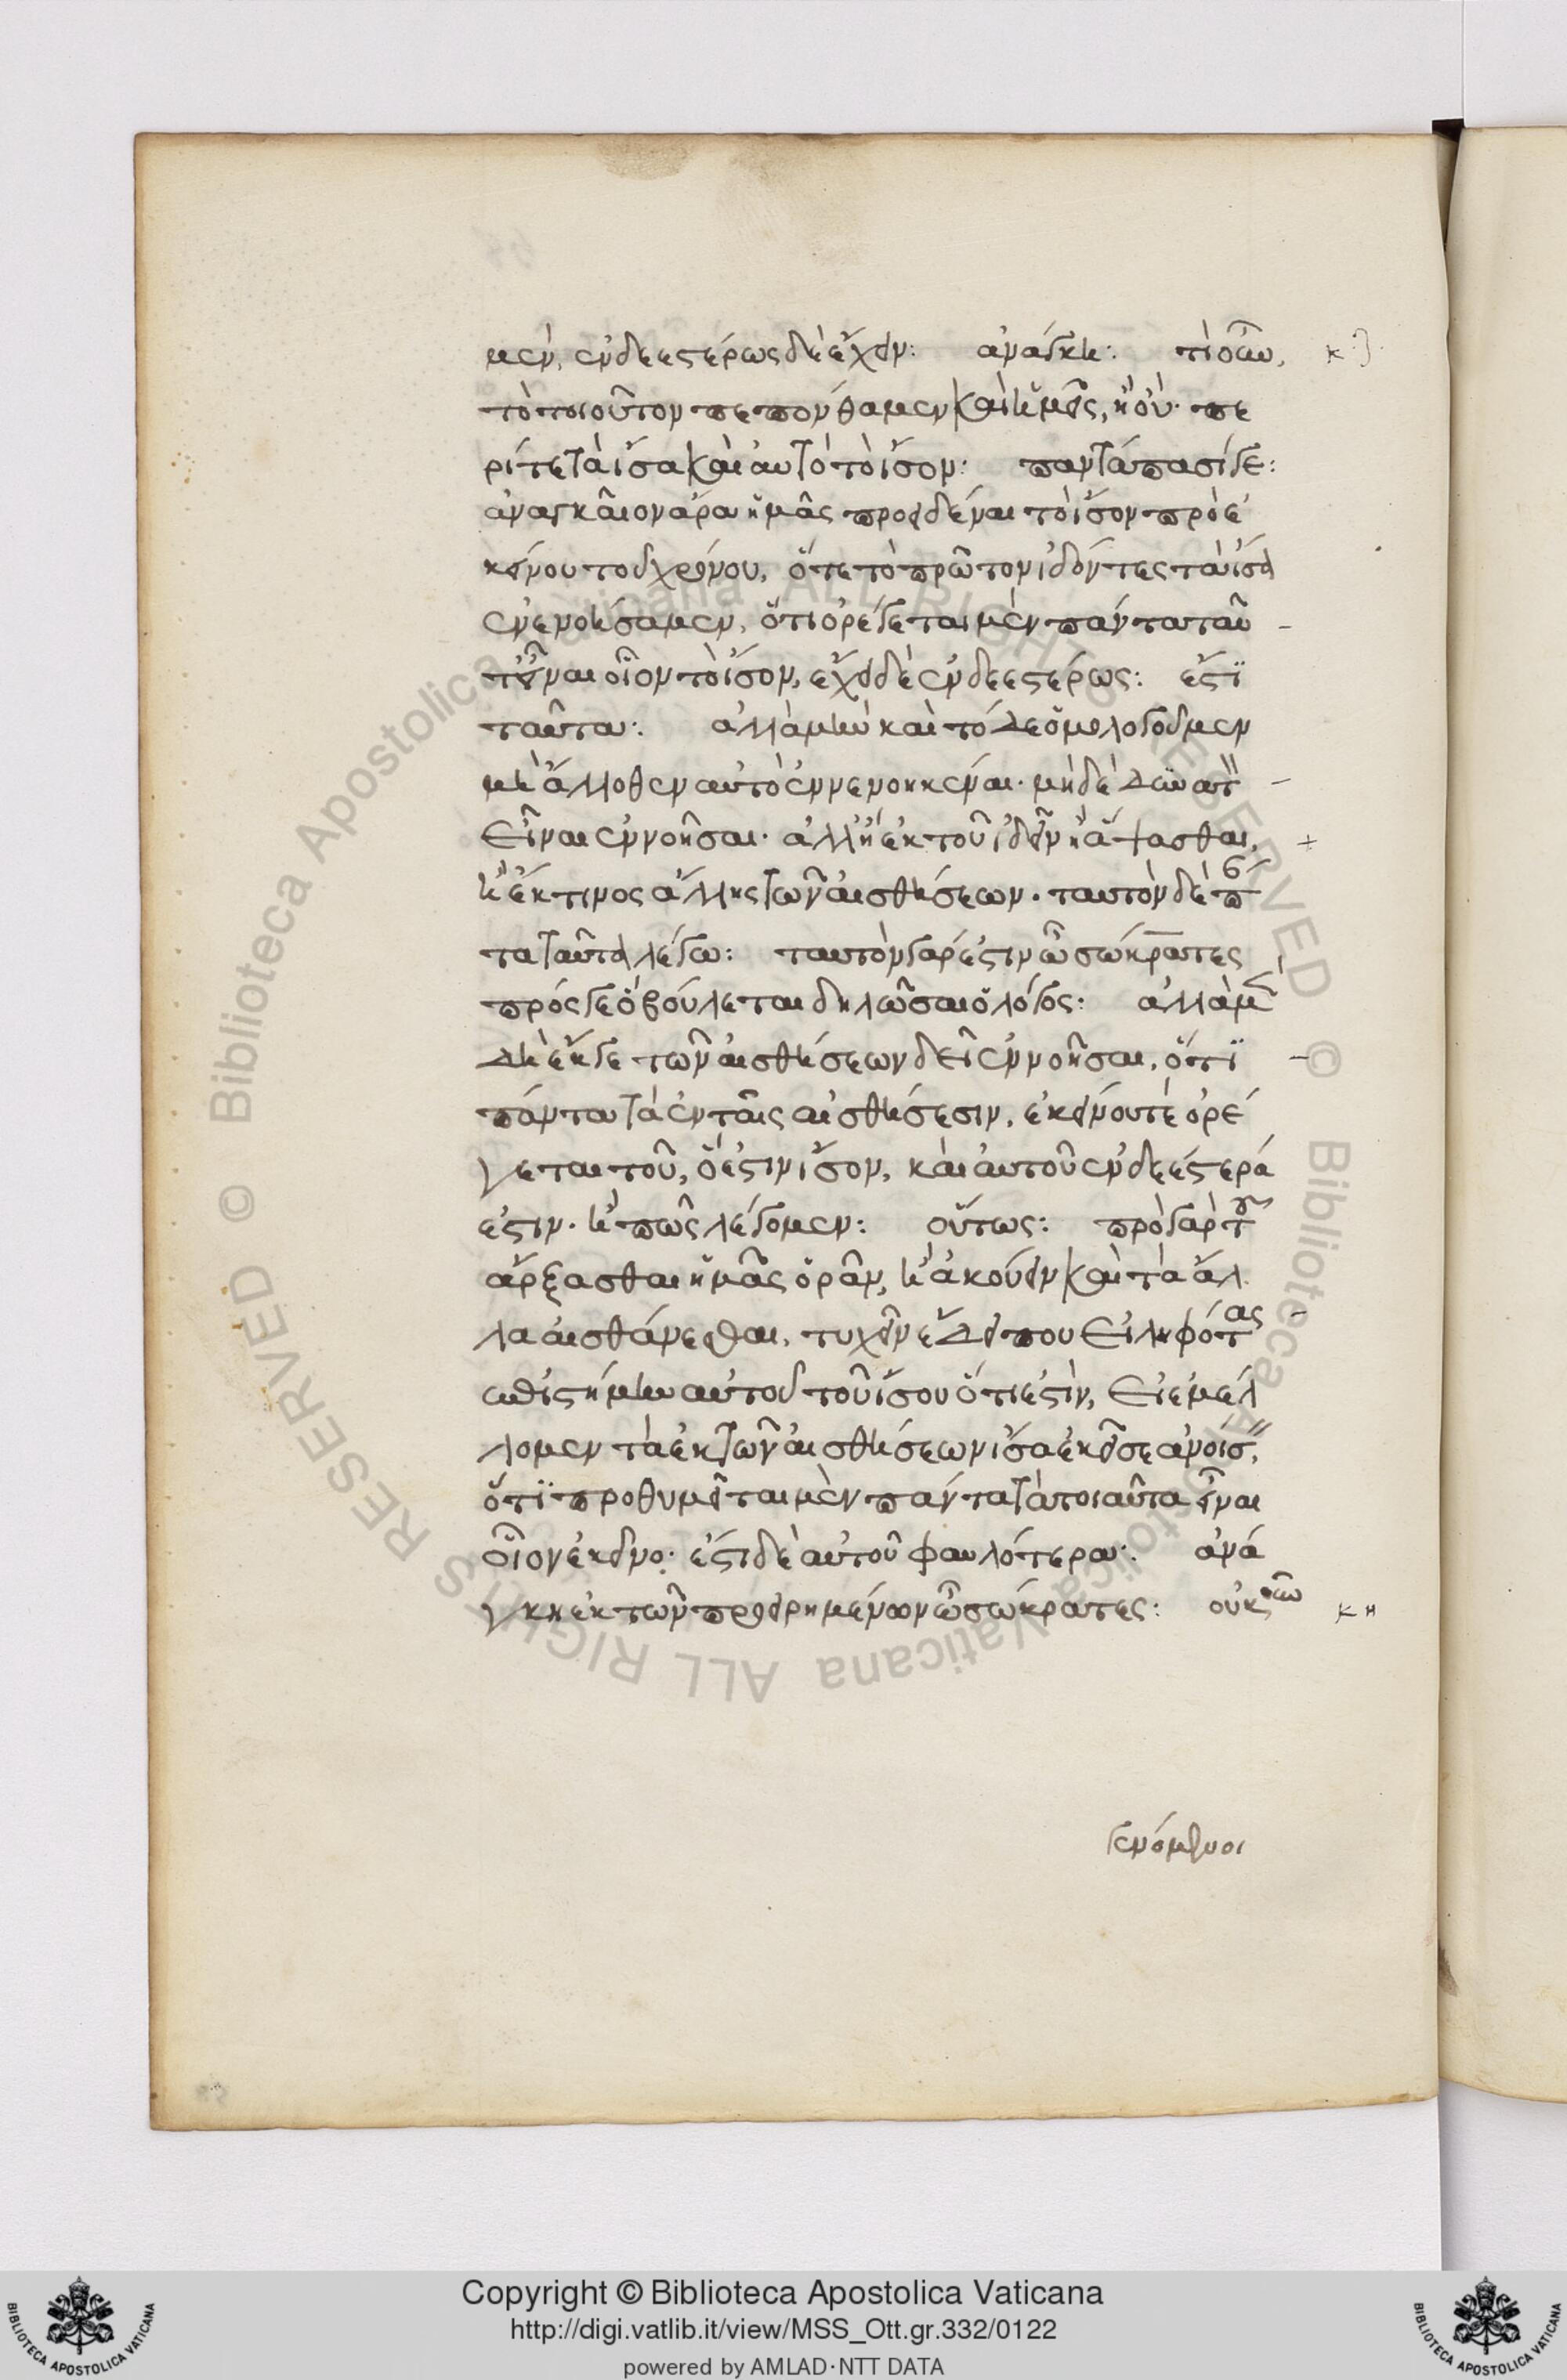 μὲν, ἐνδεεστέρως δὲ ἔχειν: ἀνάγκη: τί οὖν,
τὸ τοιοῦτον πεπόνθαμεν καὶ ἡμεῖς, ἢ οὔ· πε
ρί τε τὰ ἴσα καὶ αὐτὸ τὸ ἴσον: παντάπασί γε:
ἀναγκαῖον ἄρα ἡμᾶς προειδέναι τὸ ἴσον πρὸ ἐ
κείνου τοῦ χρόνου, ὅτε τὸ πρῶτον ἰδόντες τὰ ἴσα
ἐνενοήσαμεν, ὅτι ὀρέγεται μὲν πάντα ταῦ
τ' εἶναι οἷον τὸ ἴσον, ἔχει δὲ ἐνδεεστέρως: ἔστϊ
ταῦτα: ἀλλὰ μὴν καὶ τόδε ὁμολογοῦμεν
μὴ ἄλλοθεν αὐτὸ ἐννενοηκέναι· μηδὲ δυνατὸν
εἶναι ἐννοῆσαι· ἀλλ' ἢ ἐκ τοῦ ἰδεῖν ἢ ἅψασθαι,
ἢ ἔκ τινος ἄλλης τῶν αἰσθήσεων· ταυτὸν δὲ πάν
τα ταῦτα λέγω: ταυτὸν γάρ ἐστιν ὦ σώκρατες
πρός γε ὃ βούλεται δηλῶσαι ὁ λόγος: ἀλλὰ μὲν
δὴ ἔκ γε τῶν αἰσθήσεων δεῖ ἐννοῆσαι, ὅτϊ
πάντα τὰ ἐν ταῖς αἰσθήσεσιν, ἐκείνου τὲ ὀρέ
γεται τοῦ, ὃ ἔστιν ἴσον, καὶ αὐτοῦ ἐνδεέστερά
ἐστιν· ἢ πῶς λέγομεν: οὕτως: πρὸ γὰρ τοῦ
ἄρξασθαι ἡμᾶς ὁρᾶν, ἢ ἀκούειν καὶ τὰ ἄλ
λα αἰσθάνεσθαι, τυχεῖν ἔδει που εἰληφότας
ἐπιστήμην αὐτοῦ τοῦ ἴσου ὅτι ἐστὶν, εἰ ἐμέλ
λομεν τὰ ἐκ τῶν αἰσθήσεων ἴσα ἐκεῖσε ἀνοίσειν,
ὅτϊ προθυμεῖται μὲν πάντα τὰ τοιαῦτα εἶναι
οἷον ἐκεῖνο· ἔστι δὲ αὐτοῦ φαυλότερα: ἀνά
γκη ἐκ τῶν προειρημένων ὦ σώκρατες: οὐκοῦν
κη
γενόμενοι
Copyright © Biblioteca Apostolica Vaticana
http://digi.vatlib.it/view/MSS_Ott.gr.332/0122
powered by AMLAD·NTT DATA